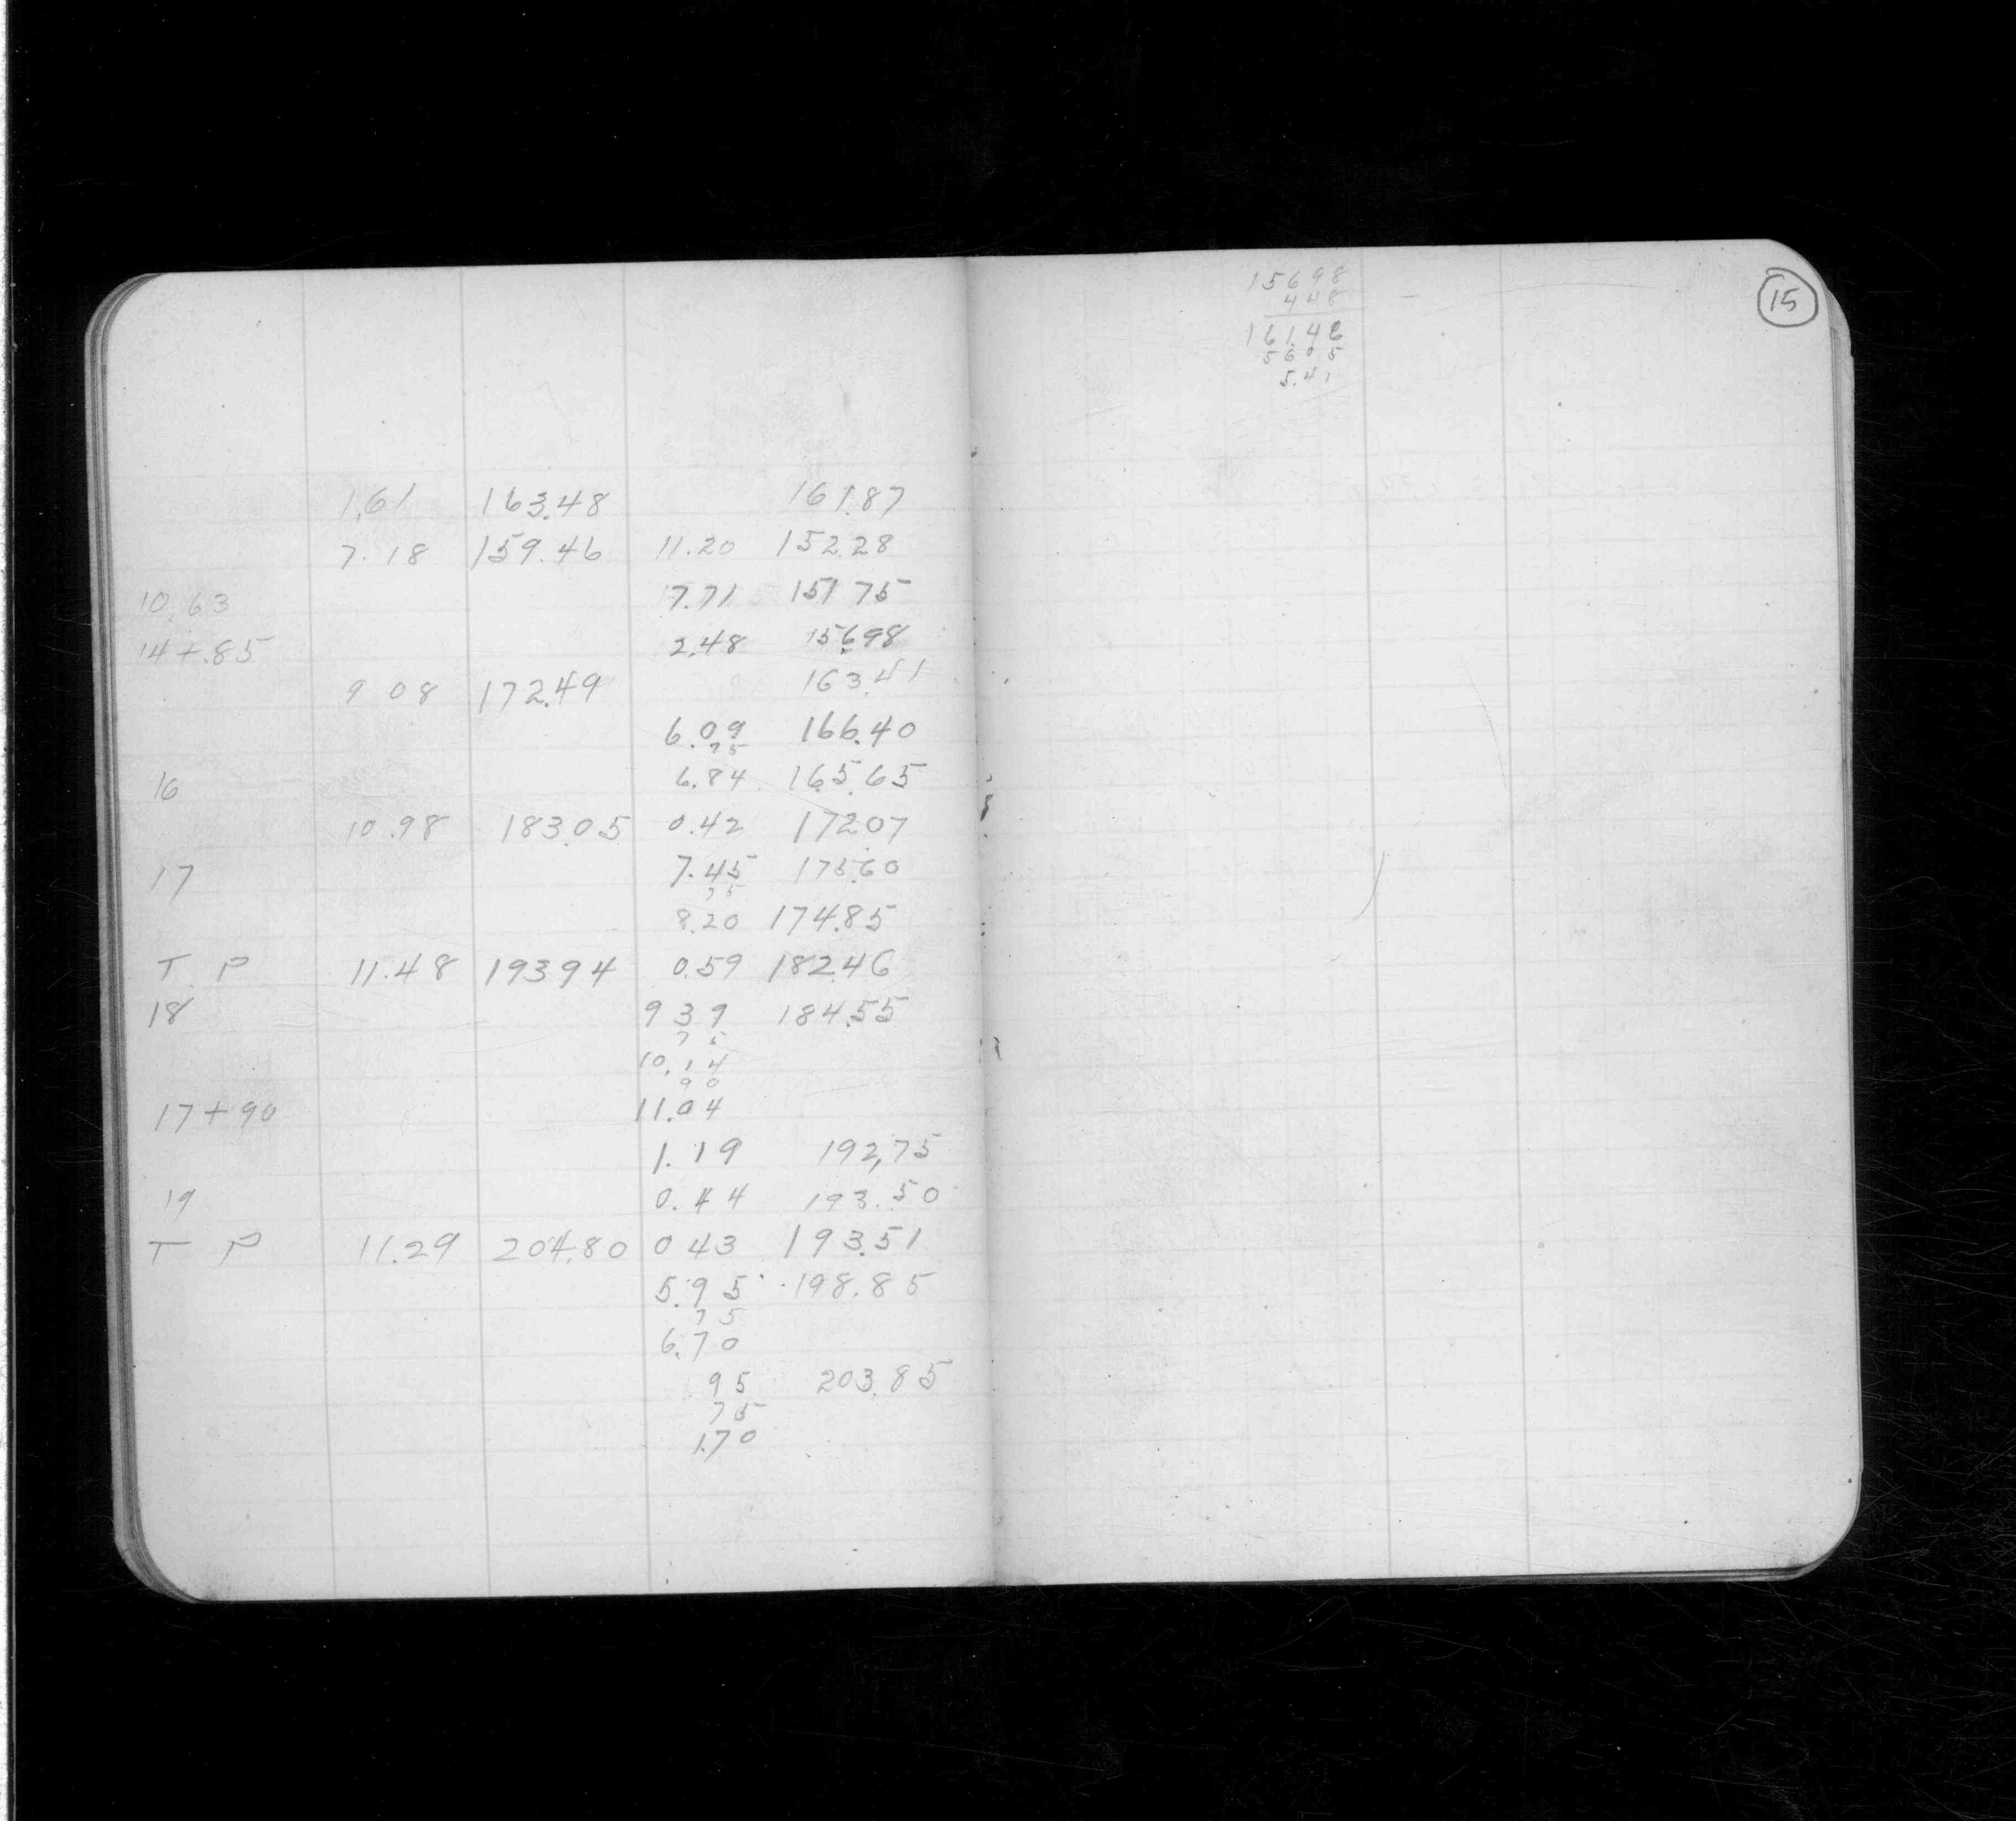 1.61 163.48 161.87
7.18 159.46 11.20 152.28
10.63 7.71 151 75
14+.85 2.48 156.98
9 08 172.49 163.41
6.09 166.40
75
16 6.84 165.65
10.98 183.05 0.42 172.07
17 7.45 175.60
75
8.20 174.85
T. P 11.48 193 94 0.59 182.46
18 9 39 184.55
75
10.14
90
17+90 11.04
1.19 192,75
19 0.44 193.50
T P 11.29 204.80 0 43 193.51
5.95 198.85
75
6.70
95 203.85
75
1.70
15
15698
448
161.46
5605
5.41